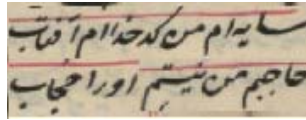 سایه ام من کدخداام آفتاب
حاجبم من نیستم اورا حجاب